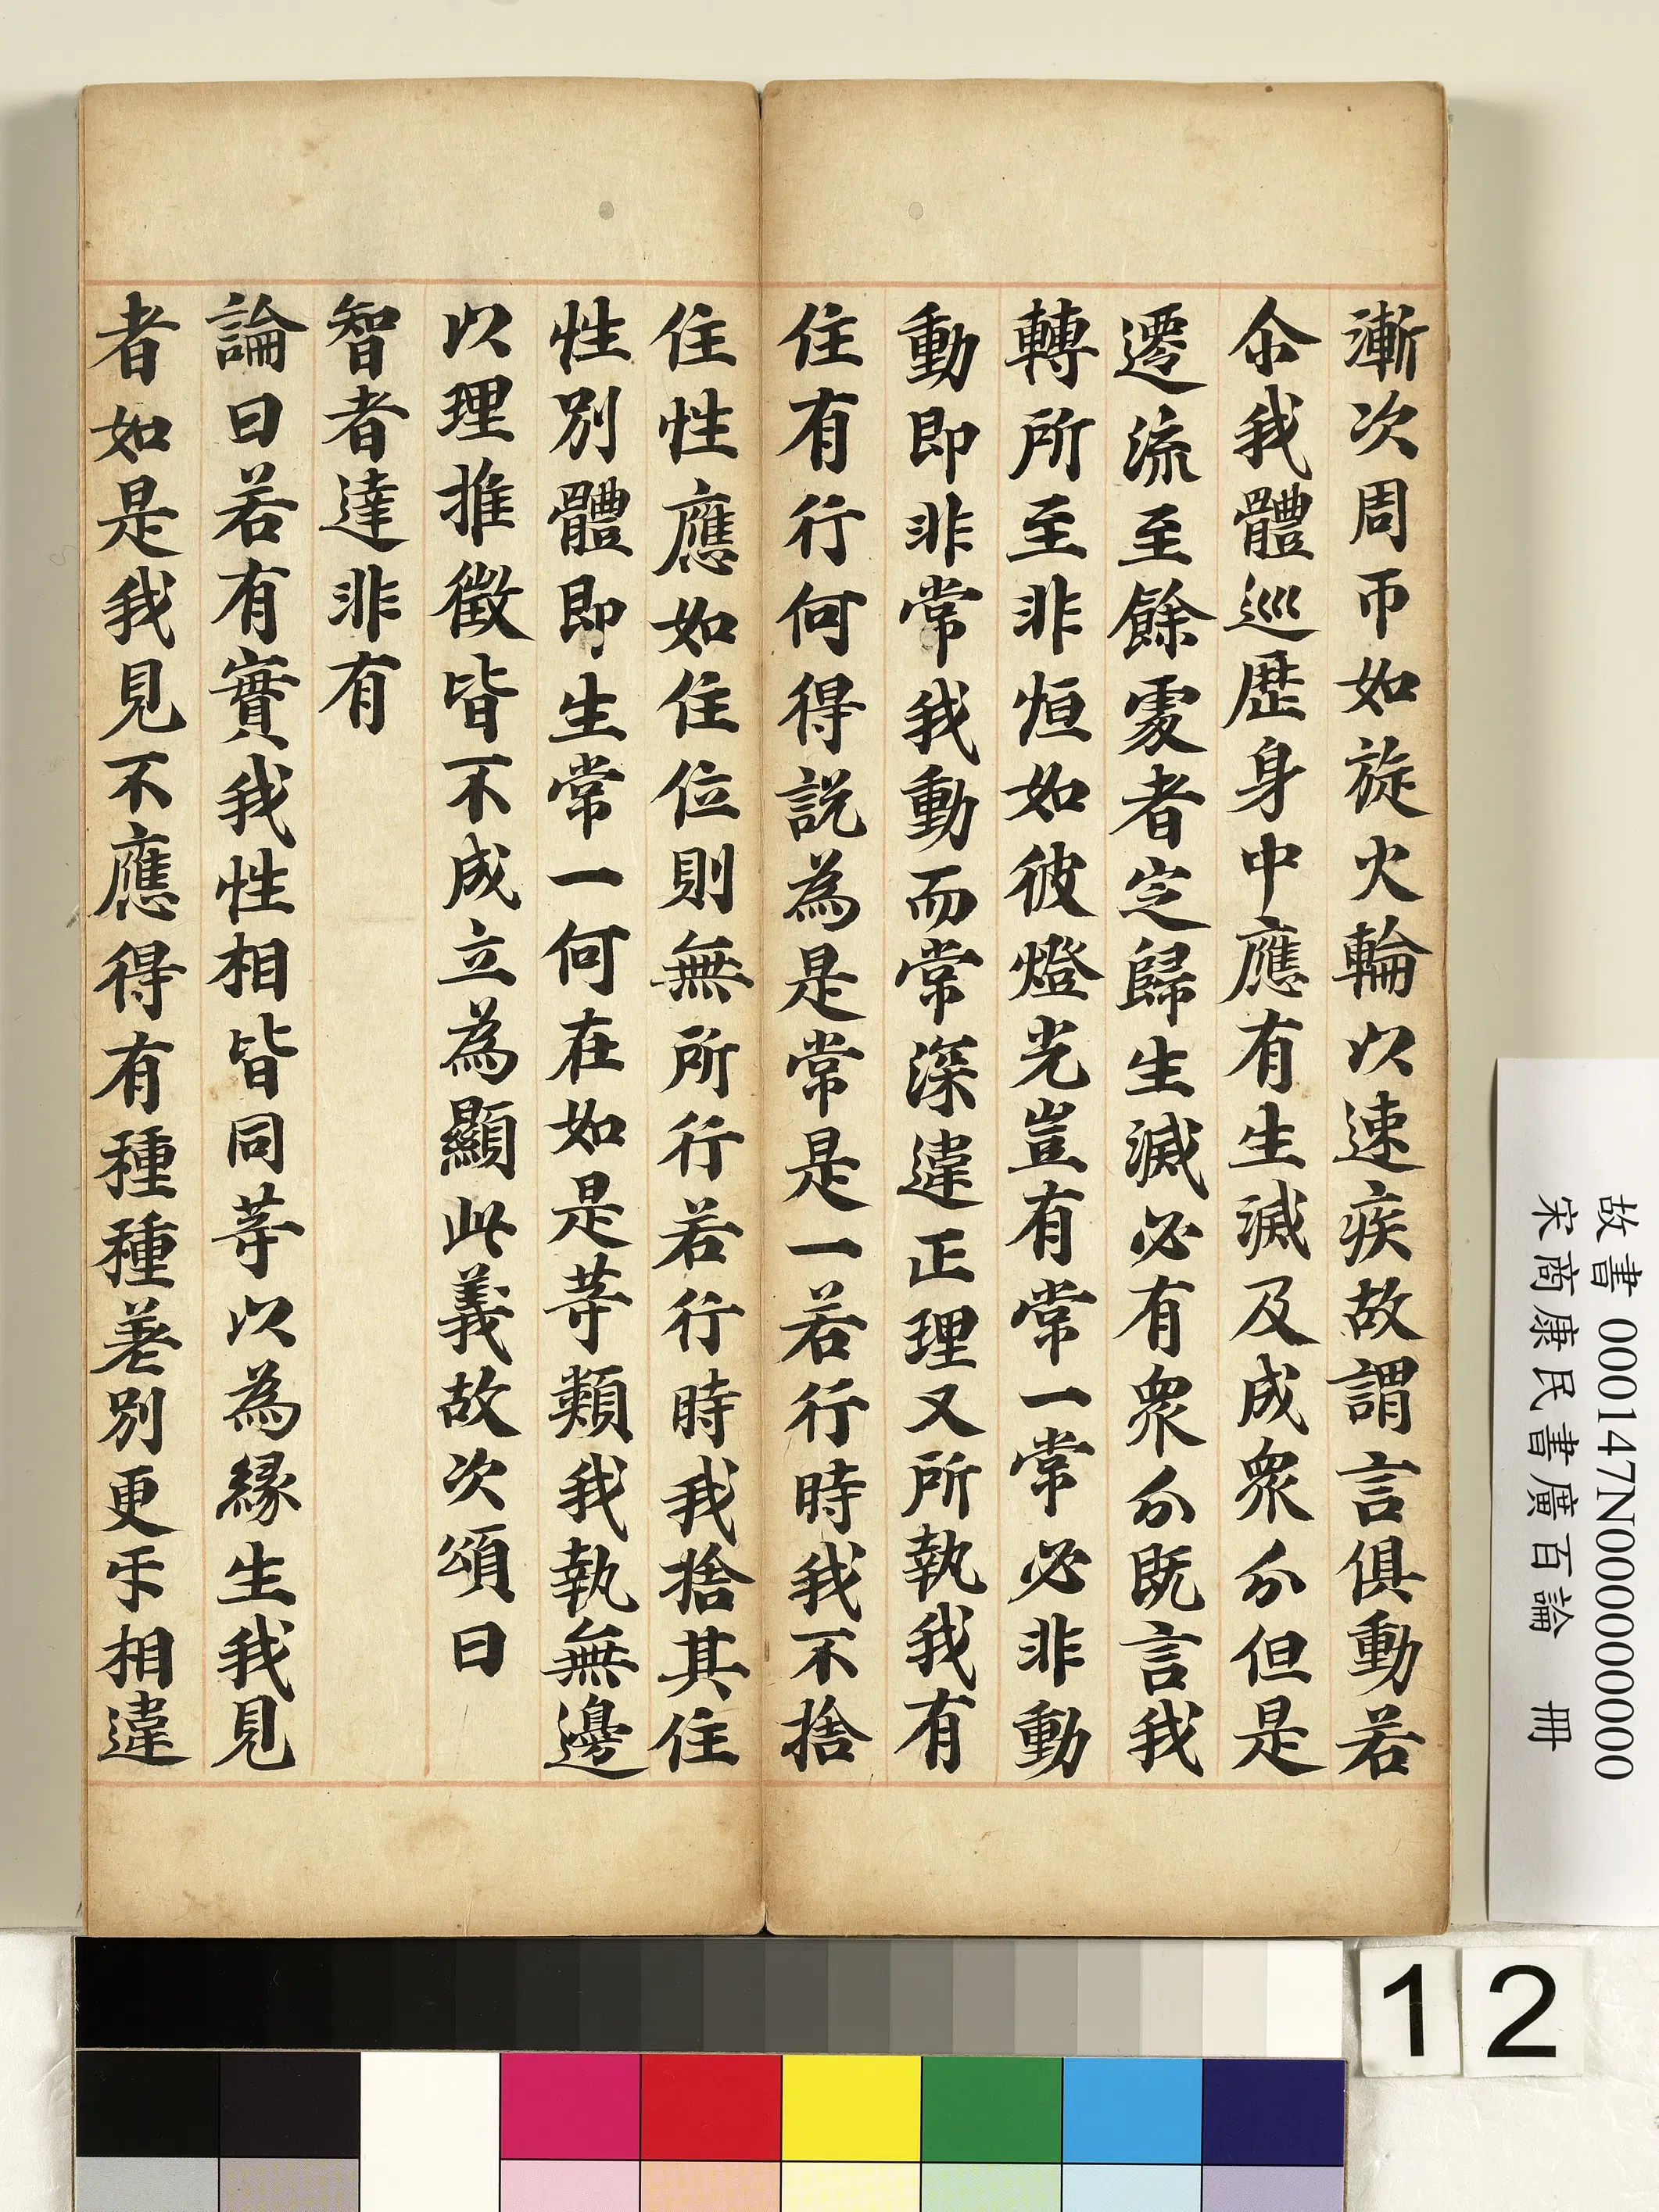 漸次周帀如旋火輪以速疾故謂言俱動若
尒我體巡歷身中應有生滅及成衆分但是
遷流至餘處者定歸生滅必有衆分既言我
轉所至非恒如彼燈光豈有常一常必非動
動即非常我動而常深違正理又所執我有
住有行何得說為是常是一若行時我不捨
住性應如住位則無所行若行時我捨其住
性別體即生常一何在如是等類我執無邊
以理推徵皆不成立為顯此義故次頌曰
智者達非有
論曰若有實我性相皆同等以為緣生我見
者如是我見不應得有種種差別更乎相違
故書 000147N000000000
宋商康民書廣百論 冊
12